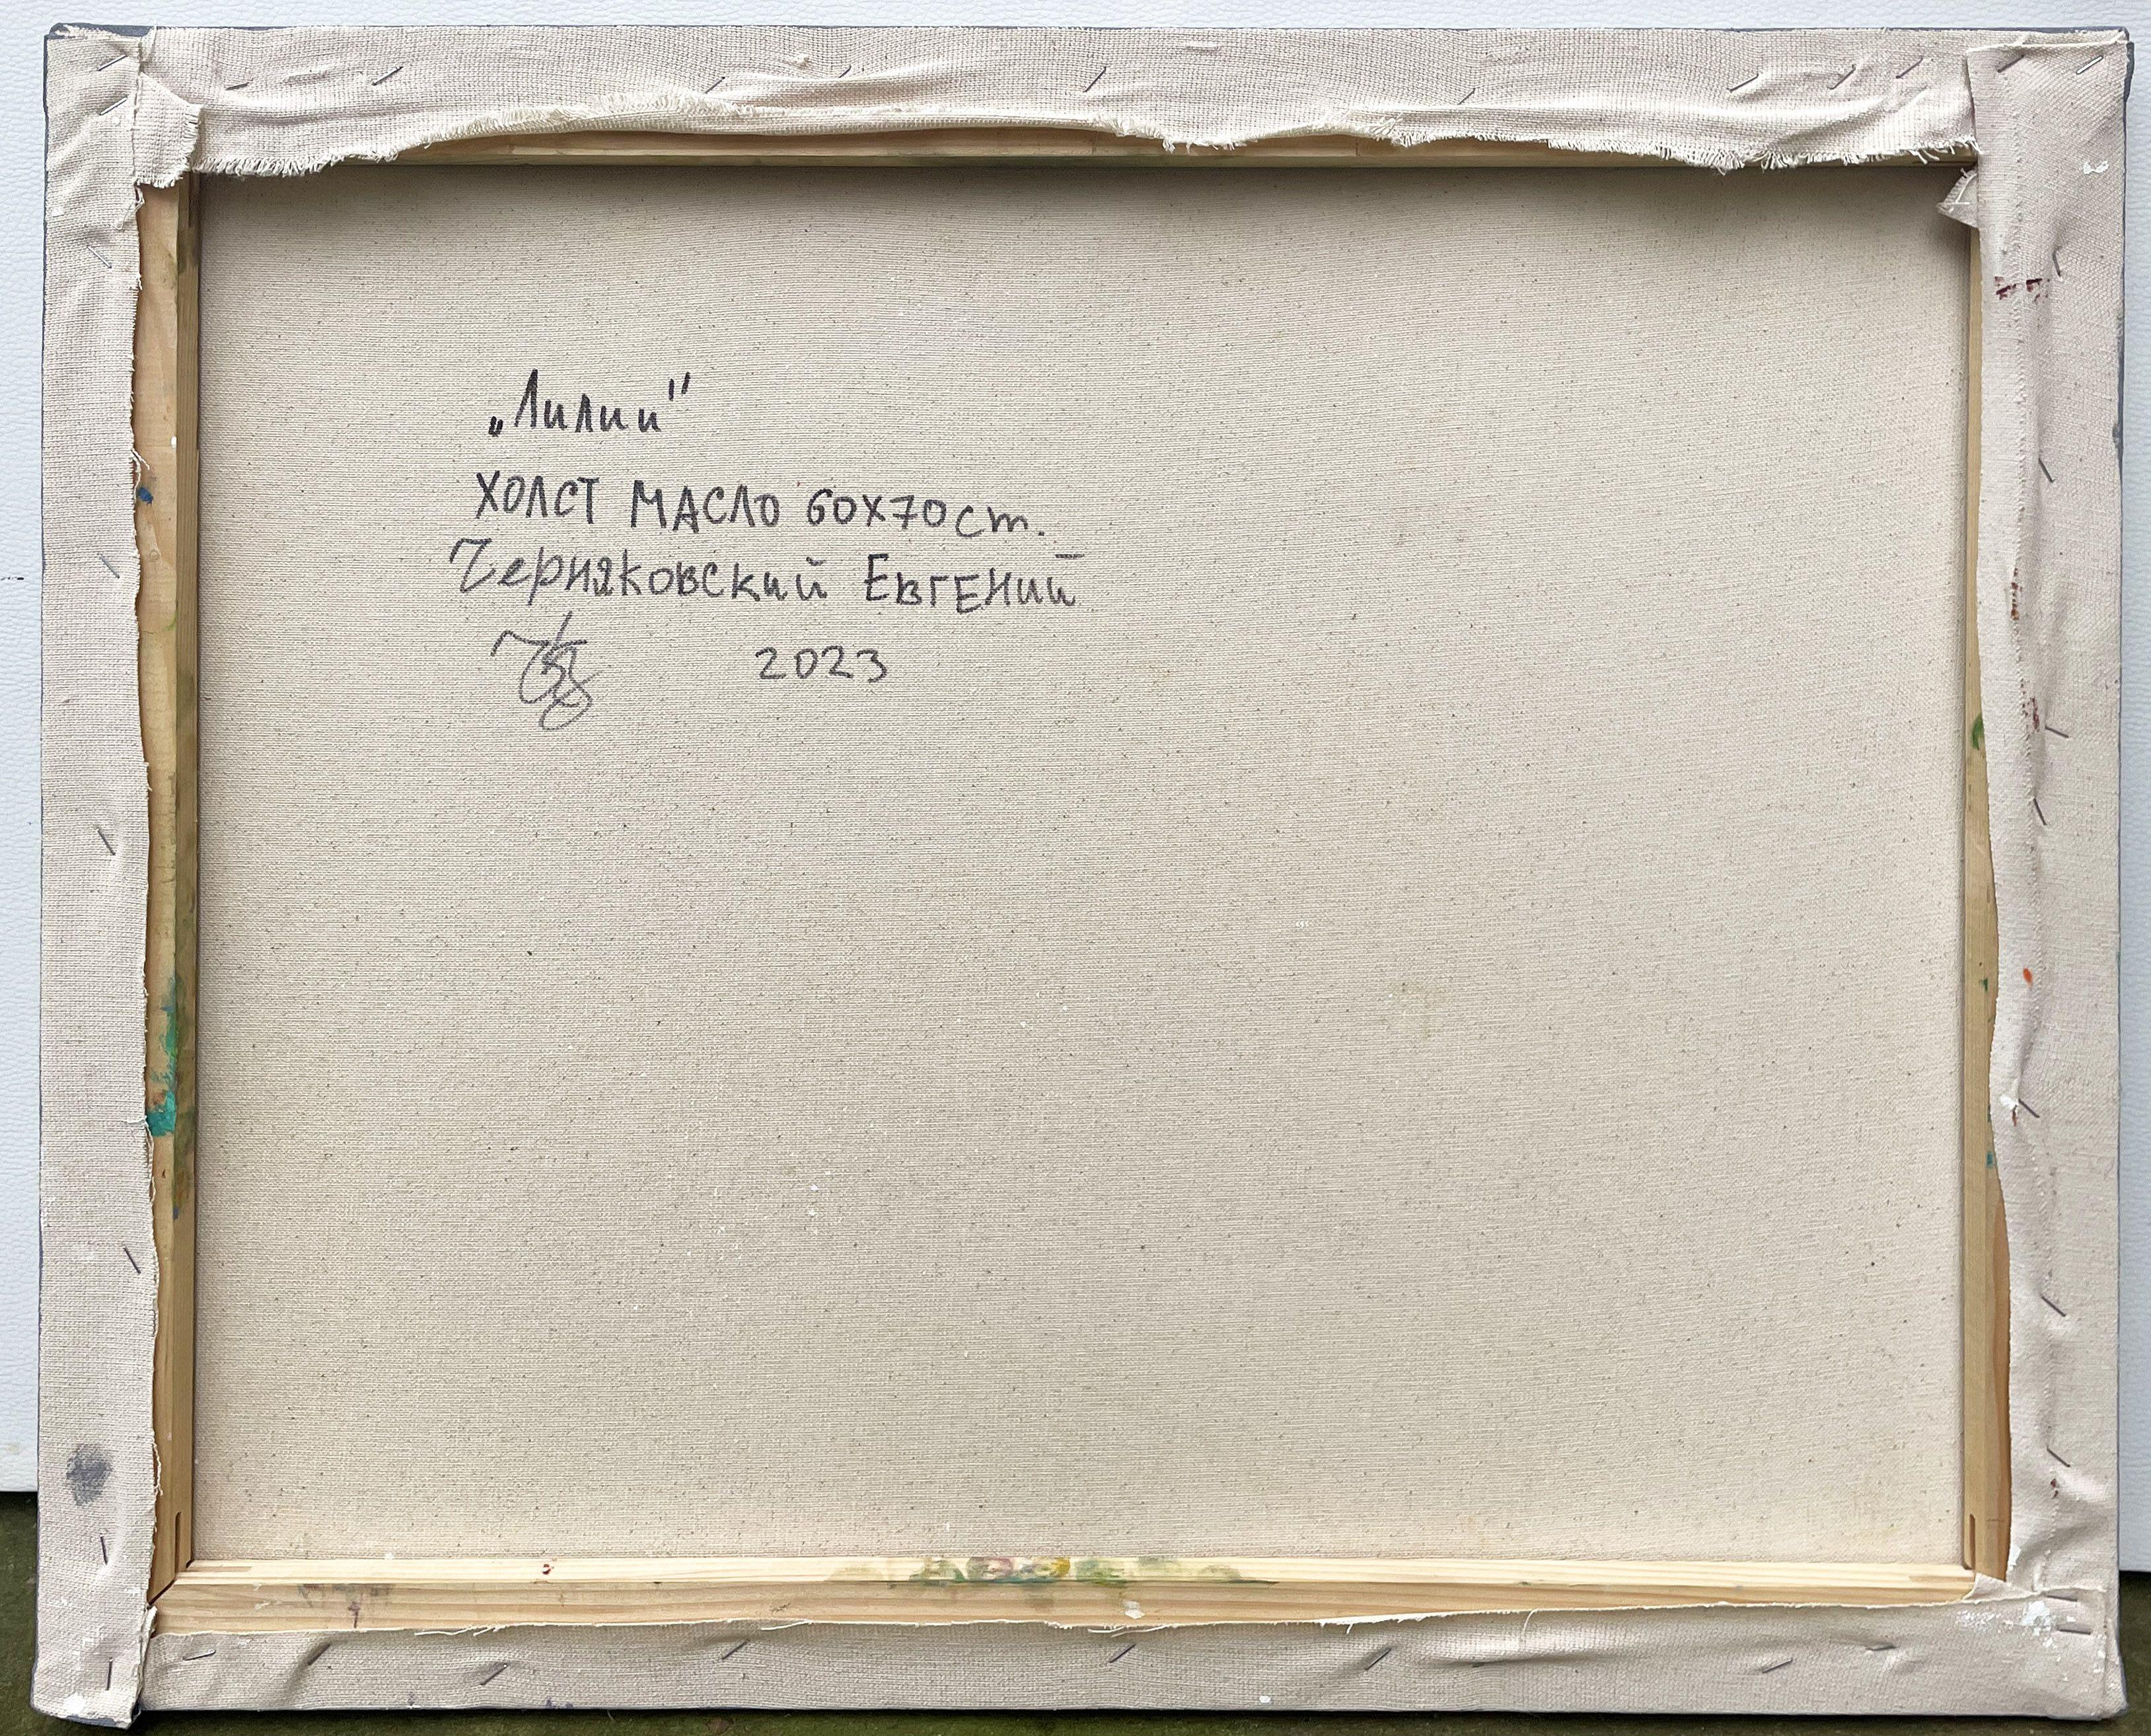 „Лилии"
ХОЛСТ МАСЛО 60X70 cm.
Черняковский ЕВГЕНий
2023